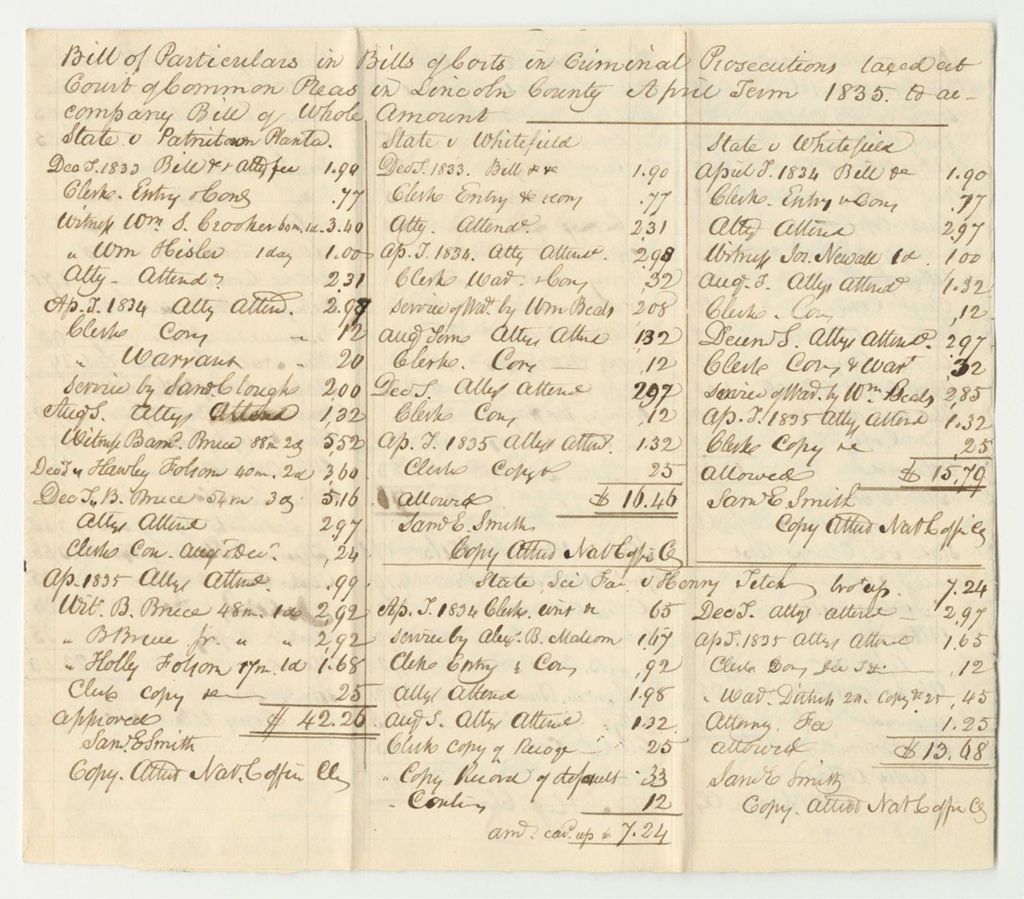 Bill of Particulars in Bills of Costs in Criminal Prosecutions taxed at
Court of Common Pleas in Lincoln County April Term 1835. to ac-
company Bill of Whole Amount
State v Patricktown Planta.
Dec T. 1833 Bill &c Atty fee 1.90
Clerk. Entry & Con .77
Witness Wm S. Crooker 60 m. 1d. 3.40
" Wm Hisler 1 day 1.00
Atty. Attend. 2.31
Ap. T. 1834 Atty Attend. 2.97
Clerk Con - 12
" Warrant - 20
Service by Saml Clough 2,00
Aug T. Attys Attend 1,32
Witness Barnd. Bruce 88 m 2d 5,52
Dec T " Hawley Folsom 40 m. 2d 3,60
Dec T. " B. Bruce 54 m 3d 5,16
Attys Attend 2,97
Clerk Con. Aug & Dec. ,24
Ap. 1835 Attys Attend ,99
Wit. B. Bruce 48 m. 1d 2,92
" B Bruce jr. " " 2,92
" Holly Folsom 17 m. 1d 1.68
Clerk copy &c 25
approved $ 42.26
Saml E Smith
Copy. Attest Nat. Coffin Clk
State v Whitefield
Dec T. 1833. Bill &c 1.90
Clerk Entry & con .77
Atty. Attend. 2 31
Ap. T. 1834. Atty Attend. 2 98
Clerk War. & Con ,32
Service of War. by Wm Beals 2 08
Aug Term Attys Attend 1 32
Clerk. Con - ,12
Dec T. Attys Attend 2 97
Clerk Con ,12
Ap. T. 1835 Attys Attend. 1.32
Clerk Copy & 25
allowed $ 16.46
Saml E. Smith
Copy Attest Nat Coffin Clk
State v Whitefield
April T. 1834 Bill &c 1.90
Clerk. Entry & Con .77
Atty Attend 2,97
Witness Jos. Newall 1d. 1 00
Aug. T. Attys Attend 1.32
Clerk. Con ,12
Decem T. Attys Attend. 2 97
Clerk Con & War 32
Service of War. by Wm Beals 2,85
Ap. T. 1835 Attys Attend 1.32
Clerk Copy &c ,25
allowed $ 15,79
Saml E. Smith
Copy Attest Nat Coffin Clk
State Sci Fa v Henry
Ap. T. 1834 Clerk. writ &c 65
Service by Alex. B. 1,67
Clerk Entry & Con ,92
Attys Attend 1.98
Aug T. Attys Attend 1.32
Clerk copy of Recog - 25
" Copy Record of default 33
" Contin 12
amt. card. up $ 7.24
bro't up. 7.24
Dec T. attys attend 2,97
Ap T. 1835 Attys Attend 1,65
Clerk Con ,12
" copy &c 25 , 45
Attorney Fee 1.25
allowed $ 13.68
Saml E Smith
Copy. Attest Nat Coffin Clk